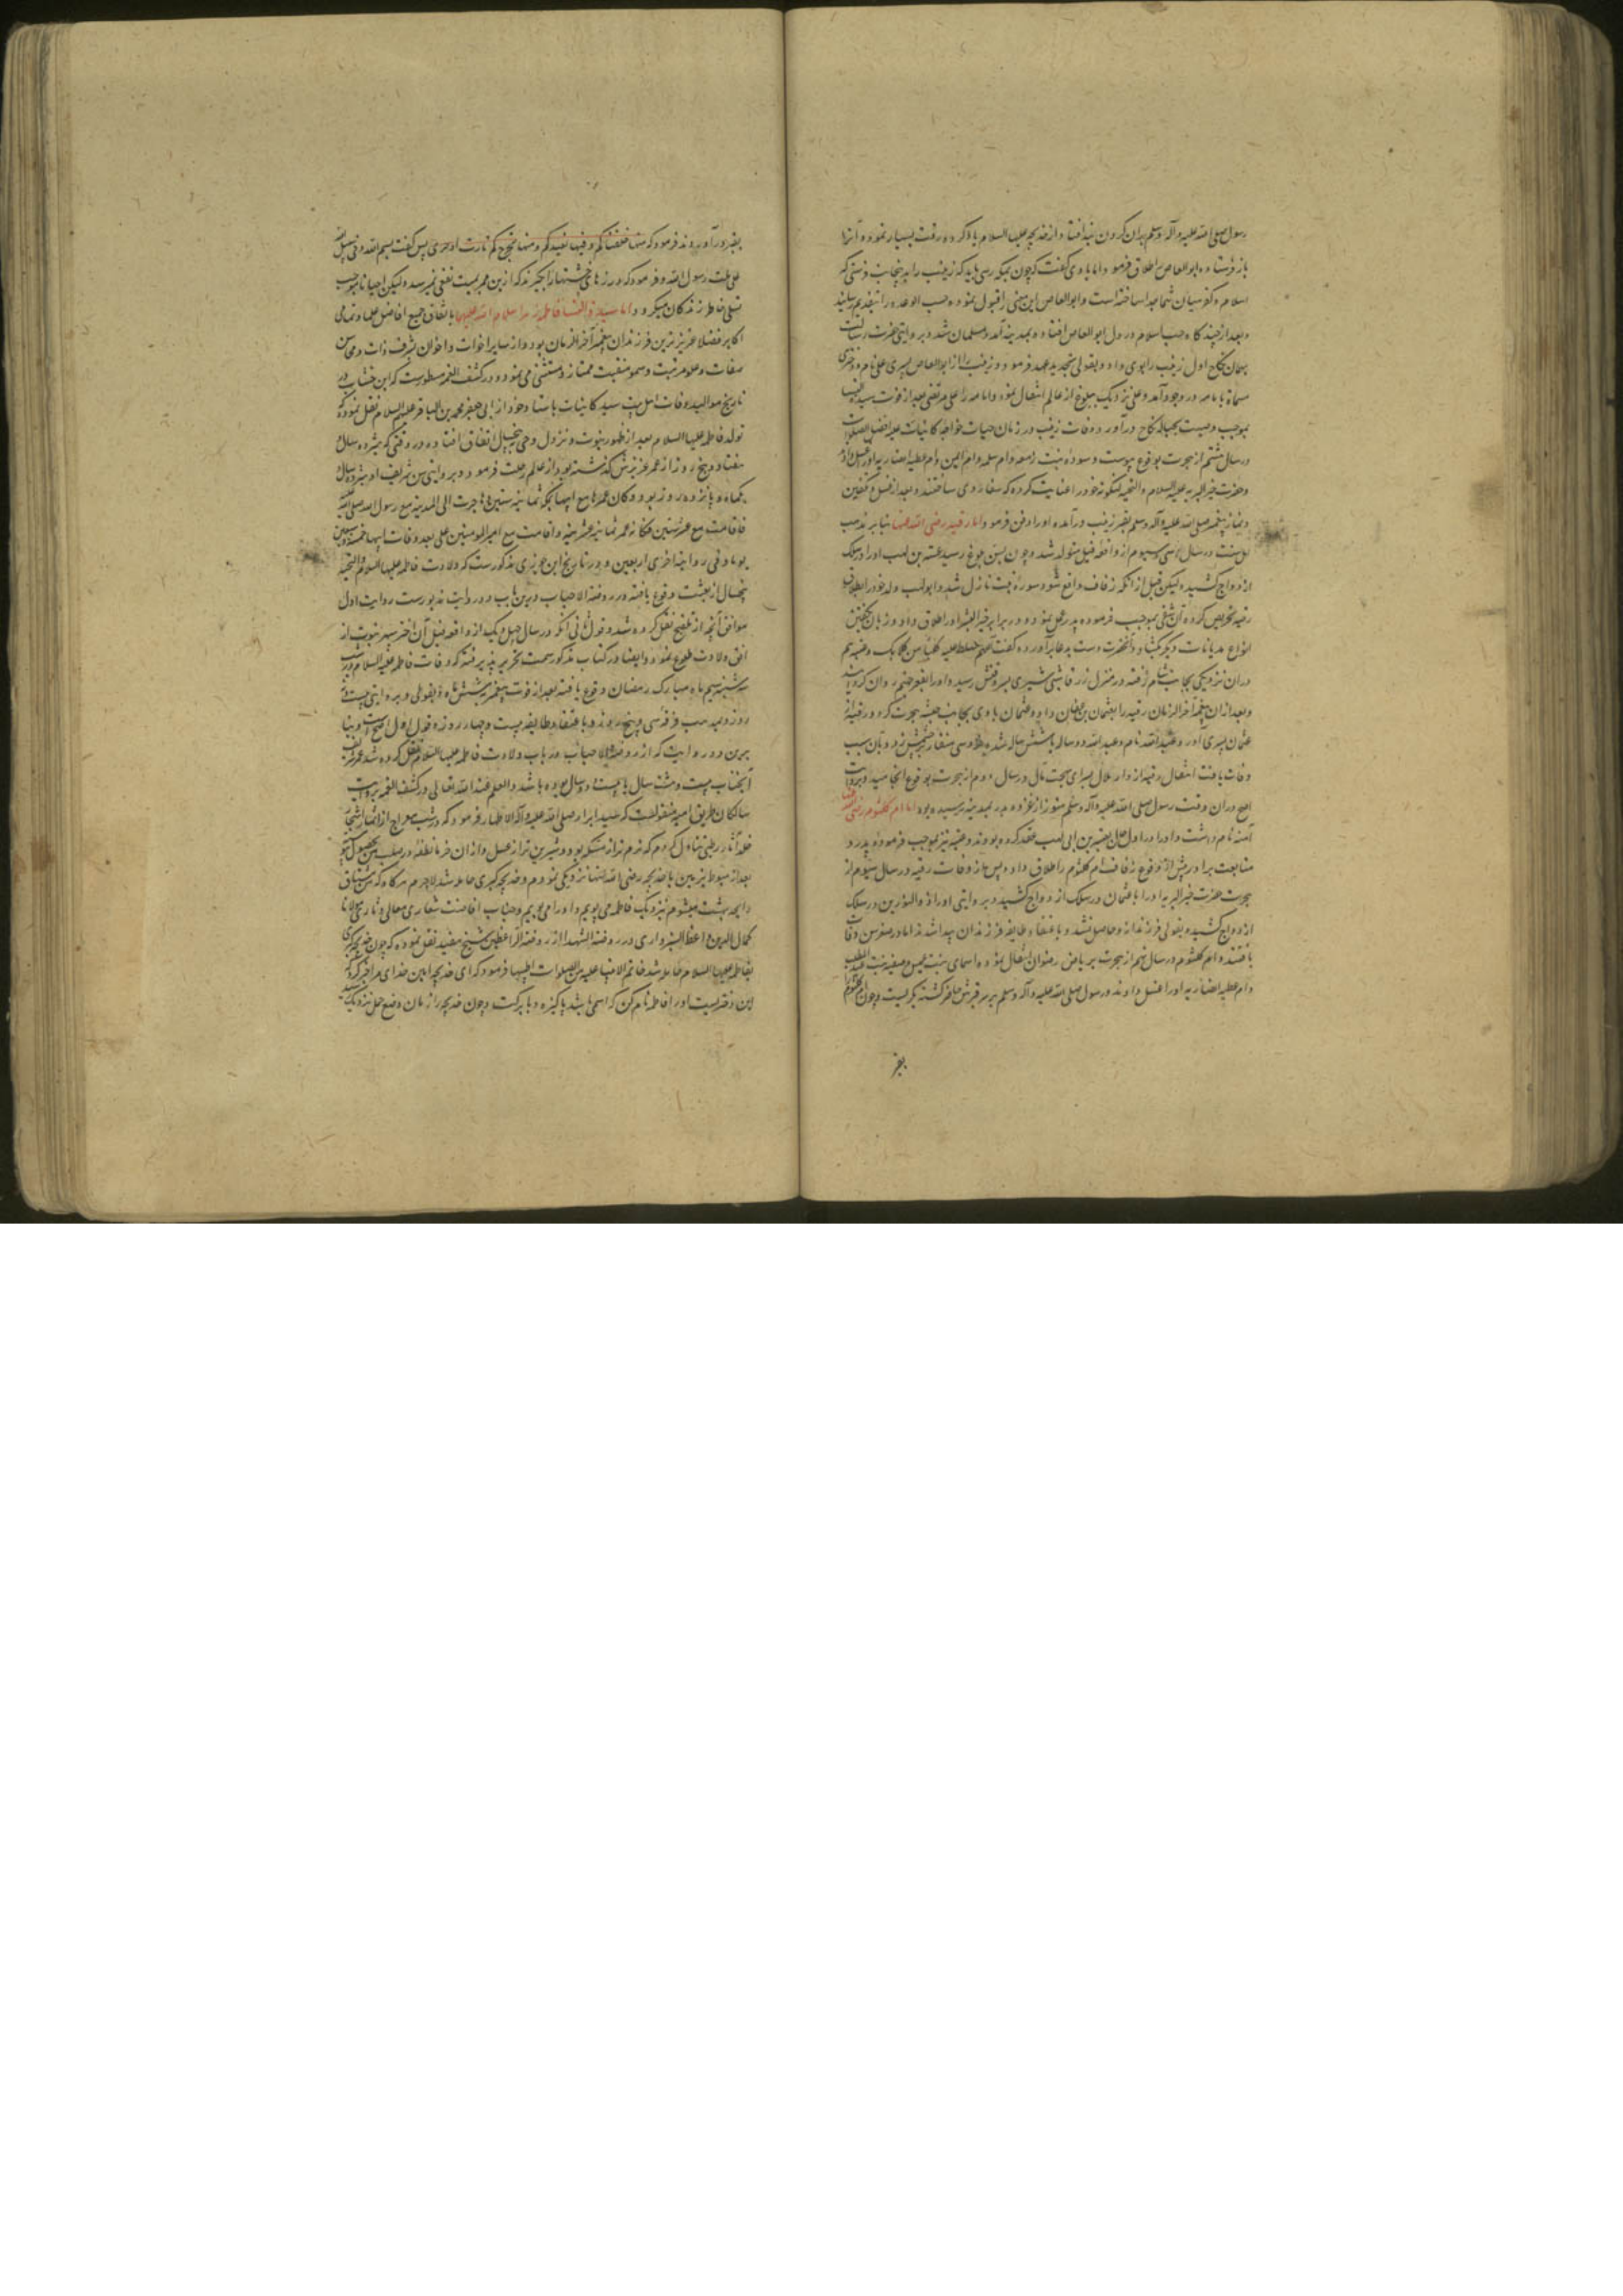 رسول صلی الله علیه و آله و سلم بران کردن بند افتاد و از خدیجه علیها السلام یاد کرده رقت بسیار نمود و آنرا
باز فرستاده ابوالعاص را طلاق فرمود اما با وی گفت که چون بمکه رسی باید که زینب را بدینجانب فرستی که
اسلام میان شما جدا ساخته است و ابوالعاص این معنی را قبول نموده حسب الوعده را بتقدیم رسانید
و بعد از چندگاه حب اسلام در دل ابوالعاص افتاده و بمدینه آمد و مسلمان شد و بروایتی حضرت رسالت
بهمان نکاح اول زینب را بوی داد و بقولی تجدید عقد فرمود و زینب را از ابوالعاص پسری علی نام و دختری
مسماة بامامه در وجود آمد و علی نزدیک ببلوغ از عالم انتقال نمود و امامه را علی مرتضی بعد از فوت سیدة النسا
بموجب وصیت بحباله نکاح درآورد و وفات زینب در زمان حیات خواجه کاینات علیه افضل الصلوات
در سال هشتم از هجرت بوقوع پیوست و سوده بنت زمعه و ام سلمه و ام ایمن و ام عطیه انصاریه او را غسل دادند
و حضرت خیر البریه علیه السلام و التحیه لنگوته خود را عنایت کرده که شعار وی ساختند و بعد از غسل و تکفین
و نماز پیغمبر صلی الله علیه و آله و سلم بقبر زینب درآمده او را دفن فرمود و اما رقیه رضی الله عنها بنابر مذهب
اهل سنت در سال سی و سیوم از واقعه فیل متولد شد و چون بسن بلوغ رسید عتبه بن لهب او را در سلک
ازدواج کشیده لیکن قبل از آنکه زفاف واقع شود سوره تبت نازل شد و ابولهب ولد خود را بطلاق
رقیه تحریص کرده آن شقی بموجب فرموده پدر عمل نمود و در برابر خیر البشر او را طلاق داد و زبان
انواع هذیانات دیگر بگشاد و آنحضرت دست بدعا برآورده گفت اللهم سلط علیه کلبا من کلابک و عتبه هم
دران نزدیکی بجانب شام رفته در منزل زرقا شبی شیری بسر وقتش رسید و او را بقعر جهنم روان گردانید
و بعد ازان پیغمبر آخر الزمان رقیه را بعثمان بن عفان داد و عثمان با وی بجانب حبشه هجرت کرد و رقیه از
عثمان پسری آورد عبدالله نام و عبدالله دو ساله یا شش ساله شده خروسی منقار در چشمش زد و بآن سبب
وفات یافت انتقال رقیه از دار ملال بسرای بهجت مآل در سال دوم از هجرت بوقوع انجامید و بروایت
اصح دران وقت رسول صلی الله علیه و آله و سلم هنوز از غزوه بدر بمدینه نرسیده بود اما ام کلثوم رضی الله عنها
آمنه نام داشت و او را در اول حال بعتبه بن ابی لهب عقد کرده بودند و عتبه نیز بموجب فرموده پدر و
متابعت برادر پیش از وقوع زفاف ام کلثوم را طلاق داده پس از وفات رقیه در سال سیوم از
هجرت حضرت خیر البریه او را با عثمان در سلک ازدواج کشید و بروایتی او را ذوالنورین در سلک
ازدواج کشیده بقولی فرزند ازو حاصل نشد و باعتقاد طایفه فرزندان پیدا شدند اما در صغر سن وفات
یافتند و ام کلثوم در سال نهم از هجرت بریاض رضوان انتقال نموده اسمای بنت عمیس و صفیه بنت عبدالمطلب
و ام عطیه انصاریه او را غسل دادند و رسول صلی الله علیه و آله و سلم بر سر قبرش حاضر گشته بگریست و چون ام کلثوم را
بقبر
بقبر درآوردند فرمود که منها خلقناکم و فیها نعیدکم و منها نخرجکم تارة اخری پس گفت بسم الله و فی سبیل الله
علی ملت رسول الله و فرمود که درزهای خشتها را بگیرند که ازین ممر بمیت نفعی نمیرسد و لیکن احیا را موجب
تسلی خاطر زندگان میگردد و اما سیدة النسا فاطمه زهرا سلام الله علیها باتفاق جمیع افاضل علما و تمامی
اکابر فضلا عزیزترین فرزندان پیغمبر آخر الزمان بود و از سایر اخوات و اخوان بشرف ذات و محاسن
صفات و علو مرتبت و سمو منقبت ممتاز و مستثنی می نمود و در کشف الغمه مسطورست که ابن خشاب در
تاریخ موالید و وفات اهل بیت سید کاینات باسناد خود از ابی جعفر محمد بن الباقر علیهم السلام نقل نموده که
تولد فاطمه علیها السلام بعد از ظهور نبوت و نزول وحی به پنج سال اتفاق افتاده و در وقتی که هیژده سال و
هفتاد و پنج روز از عمر عزیزش گذشته بود از عالم رحلت فرمود و بروایتی سن شریف او هیژده سال و
یکماه و پانزده روز بود و کان عمرها مع ابیها بمکه ثمانیه سنین و هاجرت الی المدینه مع رسول الله صلی الله علیه
فاقامت مع عشر سنین فکان عمرها ثمانیه عشر سنه و اقامت مع امیر المومنین علی بعد وفات ابیها خمسة و سبعین
یوما و فی روایة اخری اربعین و در تاریخ ابن جوزی مذکورست که ولادت فاطمه علیها السلام و التحیه
پنجسال از بعثت وقوع یافته و در روضة الاحباب درین باب دو روایت مذبورست روایت اول
موافق آنچه از تلقیح نقل کرده شد و قول ثانی آنکه در سال چهل و یک از واقعه فیل آن اختر سپهر نبوت از
افق ولادت طلوع نمود و ایضا در کتاب مذکور سمت تحریر پذیرفته که وفات فاطمه علیها السلام در شب
سه شنبه سیم ماه مبارک رمضان وقوع یافته بعد از فوت پیغمبر بشش ماه و بقولی و بروایتی بیست و
روز و بمذهب فرقه سی و پنج روز و باعتقاد طایفه بیست و چهار روز و قول اول اصح است و بنا
برین دو روایت که از روضة الاحباب در باب ولادت فاطمه علیها السلام نقل کرده شد عمر شریف
آنجناب بیست و هشت سال یا بیست و دو سال بوده باشد و العلم عند الله تعالی و در کشف الغمه بروایت
سالکان طریق امامیه منقولست که سید ابرار صلی الله علیه و آله الاطهار فرمود که در شب معراج از اثمار اشجار
خلد آثار رطبی تناول کردم که نرم تر از مسکه بود و شیرین تر از عسل و ازان خرما نطفه در صلب من بحصول پیوست
بعد از هبوط بزمین با خدیجه رضی الله عنها نزدیکی نمودم و خدیجه کبری حامله شد لاجرم هرگاه که من مشتاق
رایحه بهشت میشوم نزدیک فاطمه می پویم و او را می بویم و جناب افاضت شعاری معالی دثاری مولانا
کمال الدین واعظ السبزواری در روضة الشهدا از روضة الواعظین شیخ مفید نقل نموده که چون خدیجه کبری
بفاطمه علیها السلام حامله شد خاتم الانبیا علیه من الصلوات اطیبها فرمود که ای خدیجه امین خدای مرا خبر کرد که
این دختریست او را فاطمه نام کن که اسمی باشد پاکیزه و با برکت و چون خدیجه را زمان وضع حمل نزدیک رسید